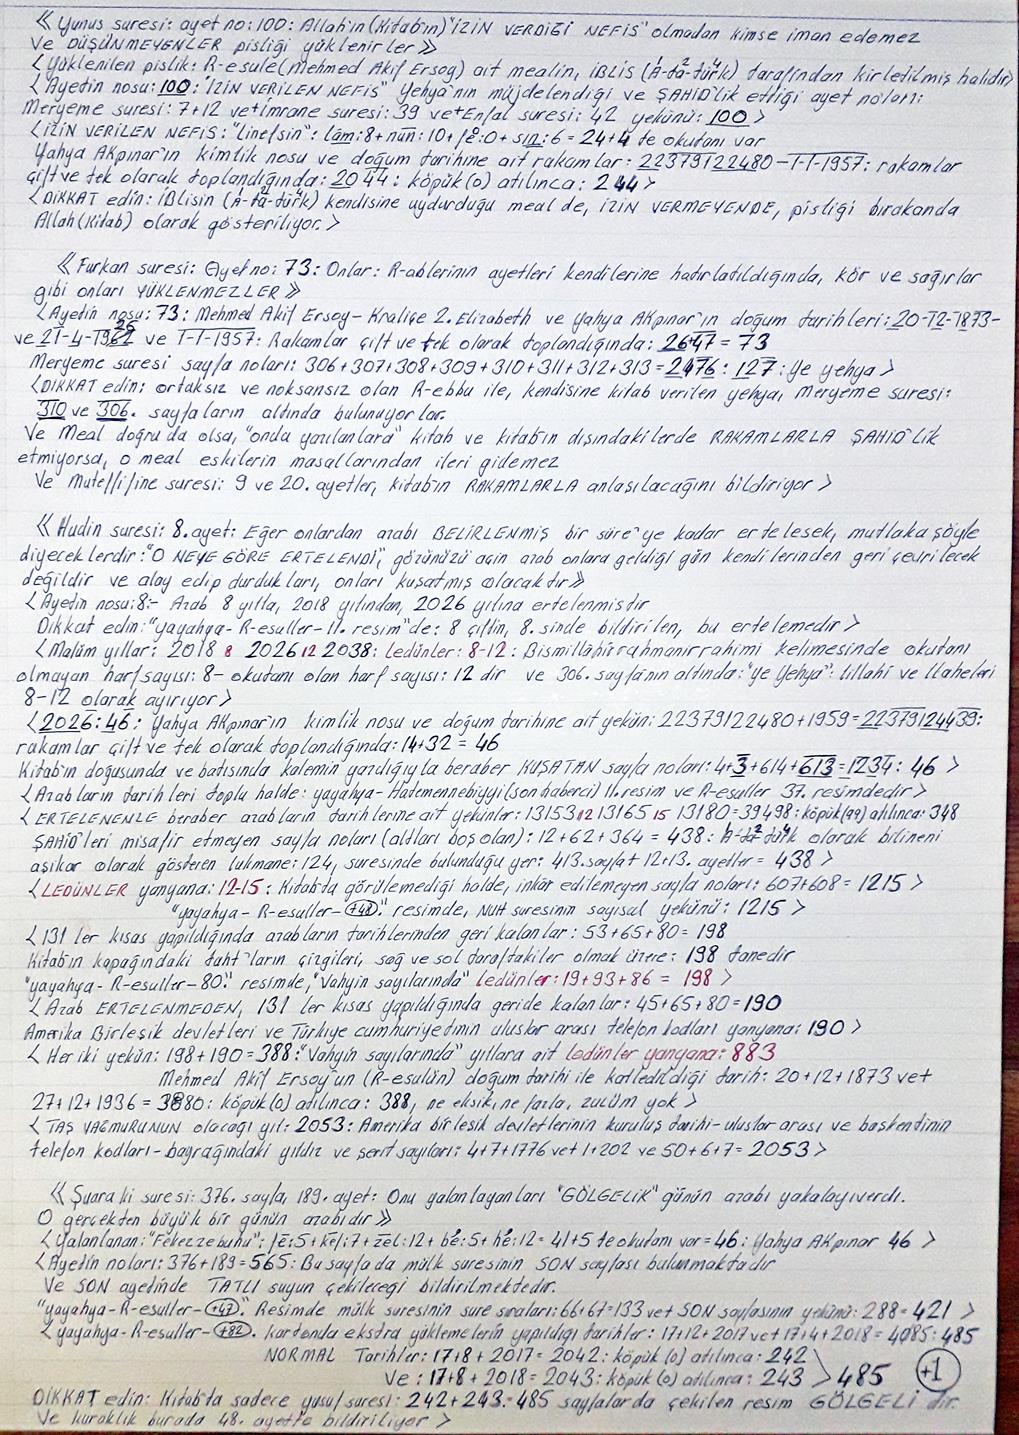 《 Yunus suresi: ayet no: 100: Allah'ın (Kitab'ın) "İZİN VERDİĞİ NEFİS" olmadan kimse iman edemez
Ve DÜŞÜNMEYENLER pisliği yüklenirler 》
< Yüklenilen pislik: R-esule (Mehmed Akif Ersoy) ait mealin, İBLİS (A-ta²-türk⁴) tarafından kirletilmiş halidir
< Ayetin nosu: 100: "İZİN VERİLEN NEFİS" Yehya'nın müjdelendiği ve ŞAHİD'lik ettiği ayet noları:
Meryeme suresi: 7+12 ve+imrane suresi: 39 ve+Enfal suresi: 42 yekünü: 100 >
< İZİN VERİLEN NEFİS: "linefsin": lâm:8+nûn:10+fê:0+sın:6=24+4 te okutanı var
Yahya AKpınar'ın kimlik nosu ve doğum tarihine ait rakamlar: 22379122480-1-1-1957: rakamlar
çift ve tek olarak toplandığında: 2044: köpük (0) atılınca: 244 >
< DİKKAT edin: İBLİSİN (A-ta²-türk⁴) kendisine uydurduğu mealde, İZİN VERMEYENDE, pisliği bırakanda
Allah (Kitab) olarak gösteriliyor. >
《 Furkan suresi: Ayet no: 73: Onlar: R-ablerinin ayetleri kendilerine hatırlatıldığında, kör ve sağırlar
gibi onları YÜKLENMEZLER 》
< Ayetin nosu: 73: Mehmed Akif Ersoy- Kraliçe 2. Elizabeth ve Yahya AKpınar'ın doğum tarihleri: 20-12-1873-
ve 21-4-1926 ve 1-1-1957: Rakamlar çift ve tek olarak toplandığında: 2647 = 73
Meryeme suresi sayfa noları: 306+307+308+309+310+311+312+313=2476: 127: Ye yehya >
< DİKKAT edin: ortaksız ve noksansız olan R-ebbu ile, kendisine kitab verilen yehya, Meryeme suresi:
310 ve 306. sayfaların altında bulunuyorlar.
Ve Meal doğru da olsa, "onda yazılanlara" kitab ve kitab'ın dışındakilerde RAKAMLARLA ŞAHİD'lik
etmiyorsa, o meal eskilerin masallarından ileri gidemez
Ve Muteffifine suresi: 9 ve 20. ayetler, kitab'ın RAKAMLARLA anlaşılacağını bildiriyor >
《 Hudin suresi: 8. ayet: Eğer onlardan azabı BELİRLENMİŞ bir süre'ye kadar ertelesek, mutlaka şöyle
diyeceklerdir: "O NEYE GÖRE ERTELENDİ", gözünüzü açın azab onlara geldiği gün kendilerinden geri çevrilecek
değildir ve alay edip durdukları, onları kuşatmış olacaktır 》
< Ayetin nosu: 8:- Azab 8 yılla, 2018 yılından, 2026 yılına ertelenmiştir
Dikkat edin: "yayahya- R-esuller- 11. resim"de: 8 çiftin, 8. sinde bildirilen, bu ertelemedir >
< Malûm yıllar: 2018 8 2026 12 2038: Ledünler: 8-12: Bismillahirrahmanirrahimi kelimesinde okutanı
olmayan harf sayısı: 8- okutanı olan harf sayısı: 12 dir ve 306. sayfanın altında: "ye Yehya": lillahi ve llaheleri
8-12 olarak ayırıyor >
< 2026: 46: Yahya AKpınar'ın kimlik nosu ve doğum tarihine ait yekün: 22379122480+1959=22379124439:
rakamlar çift ve tek olarak toplandığında: 14+32 = 46
Kitab'ın doğusunda ve batısında kalemin yazdığıyla beraber KUŞATAN sayfa noları: 4+3+614+613=1234: 46 >
< Azabların tarihleri toplu halde: yayahya- Hatemennebiyyi (son haberci) 11. resim ve R-esuller 37. resimdedir >
< ERTELENENLE beraber azabların tarihlerine ait yekünler: 13153 12 13165 15 13180=39498: köpük (99) atılınca: 348
ŞAHİD'leri misafir etmeyen sayfa noları (altları boş olan): 12+62+364 = 438: A-ta²-türk⁴ olarak bilineni
aşikar olarak gösteren lukmane: 124, suresinde bulunduğu yer: 413. sayfa+ 12+13. ayetler= 438 >
< LEDÜNLER yanyana: 12-15: Kitab'ta görülemediği halde, inkâr edilemeyen sayfa noları: 607+608= 1215 >
"yayahya- R-esuller- +48." resimde, NUH suresinin sayısal yekünü: 1215 >
< 131 ler kısas yapıldığında azabların tarihlerinden geri kalanlar: 53+65+80= 198
Kitab'ın kapağındaki taht'ların çizgileri, sağ ve sol taraftakiler olmak üzere: 198 tanedir
"yayahya- R-esuller- 80." resimde, "Vahyin sayılarında" ledünler: 19+93+86 = 198 >
< Azab ERTELENMEDEN, 131 ler kısas yapıldığında geride kalanlar: 45+65+80=190
Amerika Birleşik devletleri ve Türkiye cumhuriyetinin uluslar arası telefon kodları yanyana: 190 >
< Her iki yekün: 198+190=388: "Vahyin sayılarında" yıllara ait ledünler yanyana: 883
Mehmed Akif Ersoy'un (R-esulün) doğum tarihi ile katledildiği tarih: 20+12+1873 ve+
27+12+1936 = 3880: köpük (0) atılınca: 388, ne eksik, ne fazla, zulüm yok >
< TAŞ YAĞMURUNUN olacağı yıl: 2053: Amerika birleşik devletlerinin kuruluş tarihi- uluslar arası ve başkentinin
telefon kodları- bayrağındaki yıldız ve şerit sayıları: 4+7+1776 ve+ 1+202 ve 50+6+7= 2053 >
《 Şuara ki suresi: 376. sayfa, 189. ayet: Onu yalanlayanları "GÖLGELİK" günün azabı yakalayıverdi.
O gerçekten büyük bir günün azabıdır 》
< Yalanlanan: "Fekezzebuhu": fê:5+kêf:7+zêl:12+ bê:5+ hê:12= 41+5 te okutanı var=46: Yahya AKpınar 46 >
< Ayetin noları: 376+189=565: Bu sayfada mülk suresinin SON sayfası bulunmaktadır
Ve SON ayetinde TATLI suyun çekileceği bildirilmektedir.
"yayahya-R-esuller- +47." Resimde mülk suresinin sure sıraları: 66+67=133 ve+ SON sayfasının yekünü: 288= 421 >
< yayahya-R-esuller- +82. kartonda ekstra yüklemelerin yapıldığı tarihler: 17+12+2017 ve+ 17+4+2018 = 4085: 485
NORMAL Tarihler: 17+8+2017= 2042: köpük (0) atılınca: 242
Ve: 17+8+2018= 2043: köpük (0) atılınca: 243 > 485 +1
DİKKAT edin: Kitab'ta sadece yusuf suresi: 242+243=485 sayfalarda çekilen resim GÖLGELİ dir.
Ve kuraklık burada 48. ayette bildiriliyor >